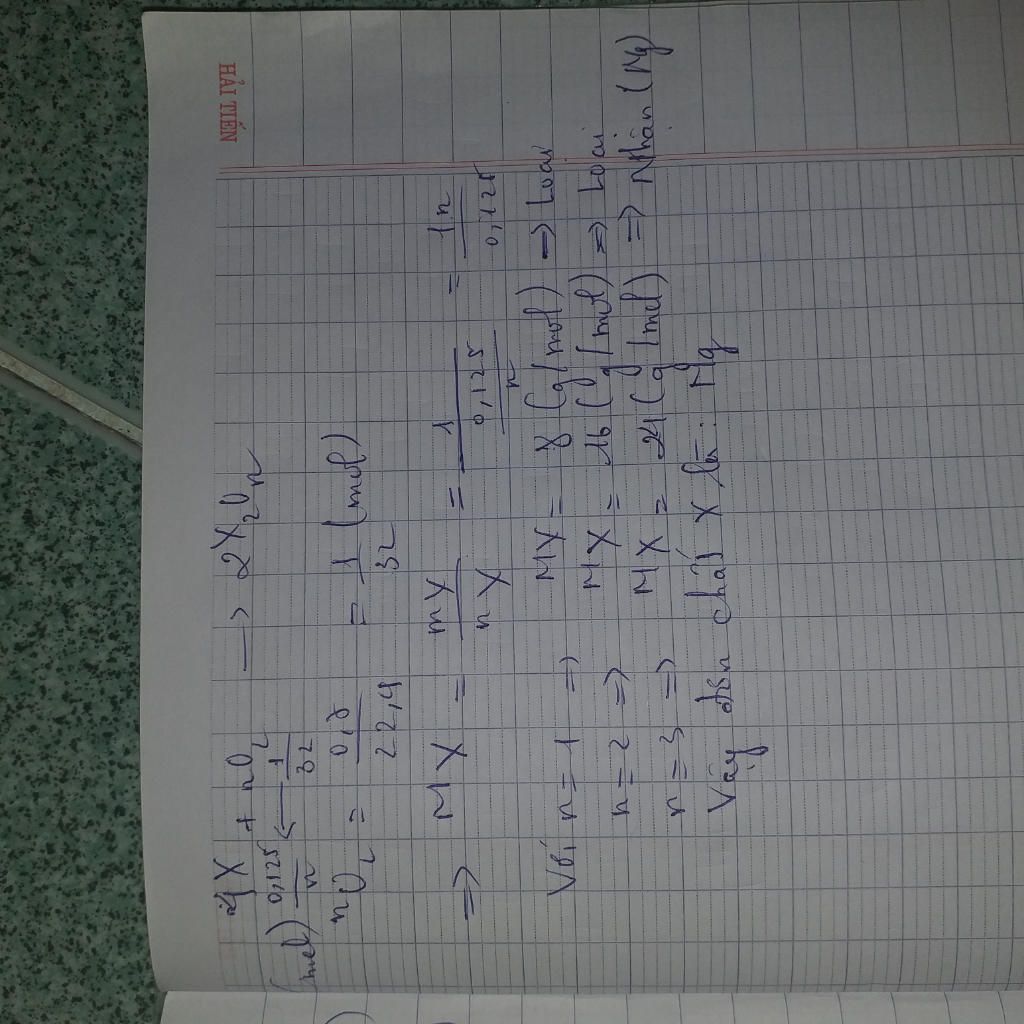 HẢI TIẾN
4X + nO2 → 2X2On
(mol) 0,125/n ← 1/32
nO2 = 0,7/22,4 = 1/32 (mol)
=> MX = mX/nX = 1/(0,125/n) = 1n/0,125
Với n = 1 => MX = 8 (g/mol) => Loại
n = 2 => MX = 16 (g/mol) => Loại
n = 3 => MX = 24 (g/mol) => Nhận (Mg)
Vậy đơn chất X là: Mg